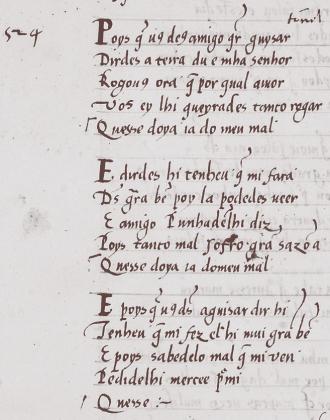 tornel
524
Poys q̃ uꝯ deꝯ amigo q̃r guysar
Dirdes a teira du e mha senhor
Rogouꝯ ora q̃ por qual amor
Vos ey lhi queyrades tanto rogar
Quesse doya ia do meu mal
E dirdes hi tenheu q̃ mi fara
Dꝯ grã bẽ poy la podedes ueer
E amigo punhadelhi diz
Poys tanto mal soffro grã sazõ a
Quesse doya ia domeu mal
E poys q̃ uꝯ dꝯ aguisar dir hi
Tenheu q̃ mi fez el hi mui grã bẽ
E poys sabedelo mal q̃ mi ven
Pedidelhi mercee p̃ mi
Quesse :~